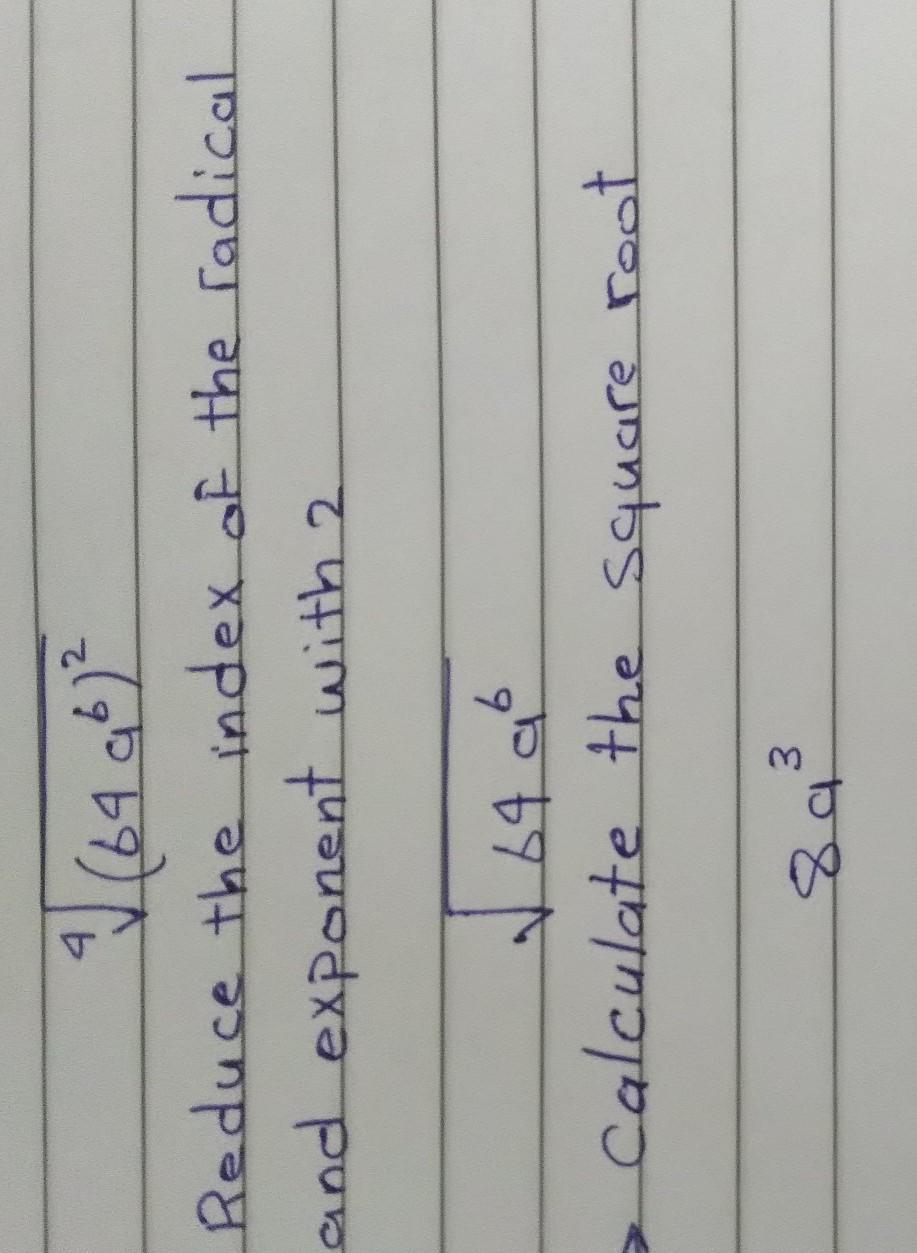 ⁴√(64 a⁶)²
Reduce the index of the radical
and exponent with 2
√64 a⁶
→ Calculate the square root
8a³